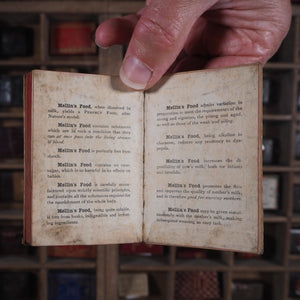 Mellin's Food, when dissolved in
milk, yields a PERFECT FOOD, after
Nature's model.
Mellin's Food contains substances
which are in such a condition that they
can at once pass into the living stream
of blood.
Mellin's Food is perfectly free from
starch.
Mellin's Food contains no cane-
sugar, which is so harmful in its effects on
babies.
Mellin's Food is carefully manu-
factured upon strictly scientific principles,
and contains all the substances requisite for
the nourishment of the whole body.
Mellin's Food, being quite soluble,
is free from husks, indigestible and
Mellin's Food admits variation in
preparation to meet the requirements of the
strong and vigorous, the young and aged,
as well as those of the weak and ailing.
Mellin's Food, being alkaline in
character, reduces any tendency to dys-
pepsia.
Mellin's Food increases the di-
gestibility of cow's milk, both for infants
and invalids.
Mellin's Food promotes the flow
and improves the quality of mother's milk,
and is therefore good for nursing mothers.
Mellin's Food may be given
with the mother's milk, making
subsequent weaning an easy task.